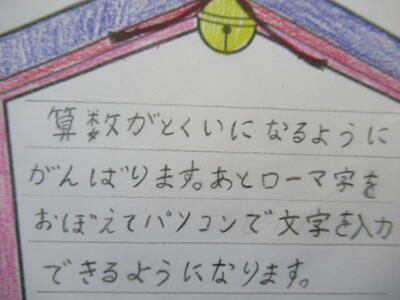 算数がとくいになるように
がんばります。あとローマ字を
おぼえてパソコンで文字を入力
できるようになります。